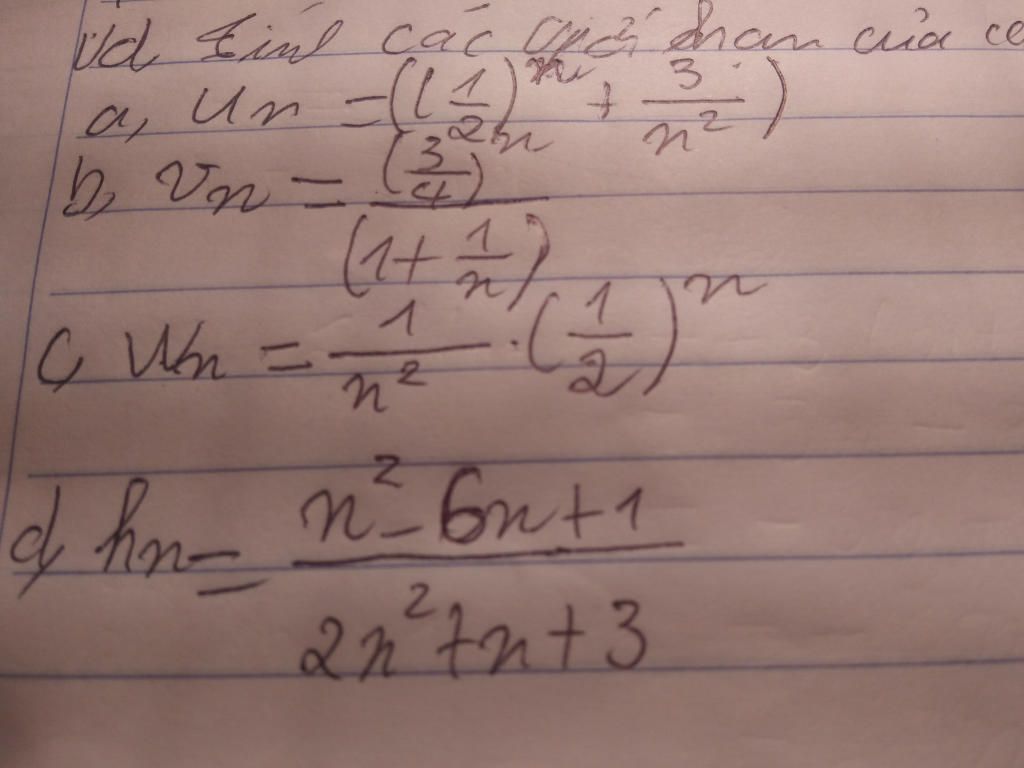 Vd tính các giới hạn của
a, Un = ((1/2)^n + 3/n^2)
b, Vn = (3/4)^n / (1 + 1/n)
c, Wn = 1/n^2 · (1/2)^n
d, hn = (n^2 - 6n + 1) / (2n^2 + n + 3)